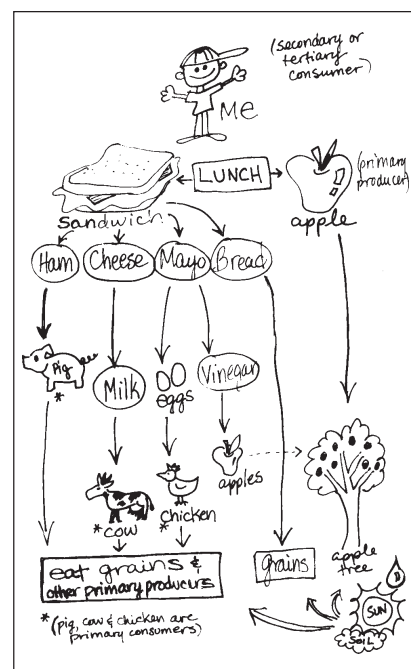 (secondary or
tertiary
consumer)
ME
LUNCH
(primary
producer)
sandwich
apple
Ham
Cheese
Mayo
Bread
Pig
*
Milk
eggs
Vinegar
apples
*cow
*
chicken
eat grains &
other primary producers
grains
apple
tree
*(pig, cow & chicken are
primary consumers)
SUN
SOIL